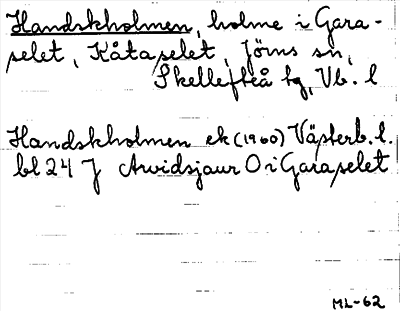 Handskholmen, holme i Gara-
selet, Kåtaselet, Jörns sn,
Skellefteå tg, Vb. l
Handskholmen ek (1960) Västerb. l.
bl 24 J Arvidsjaur O i Garaselet
ML-62